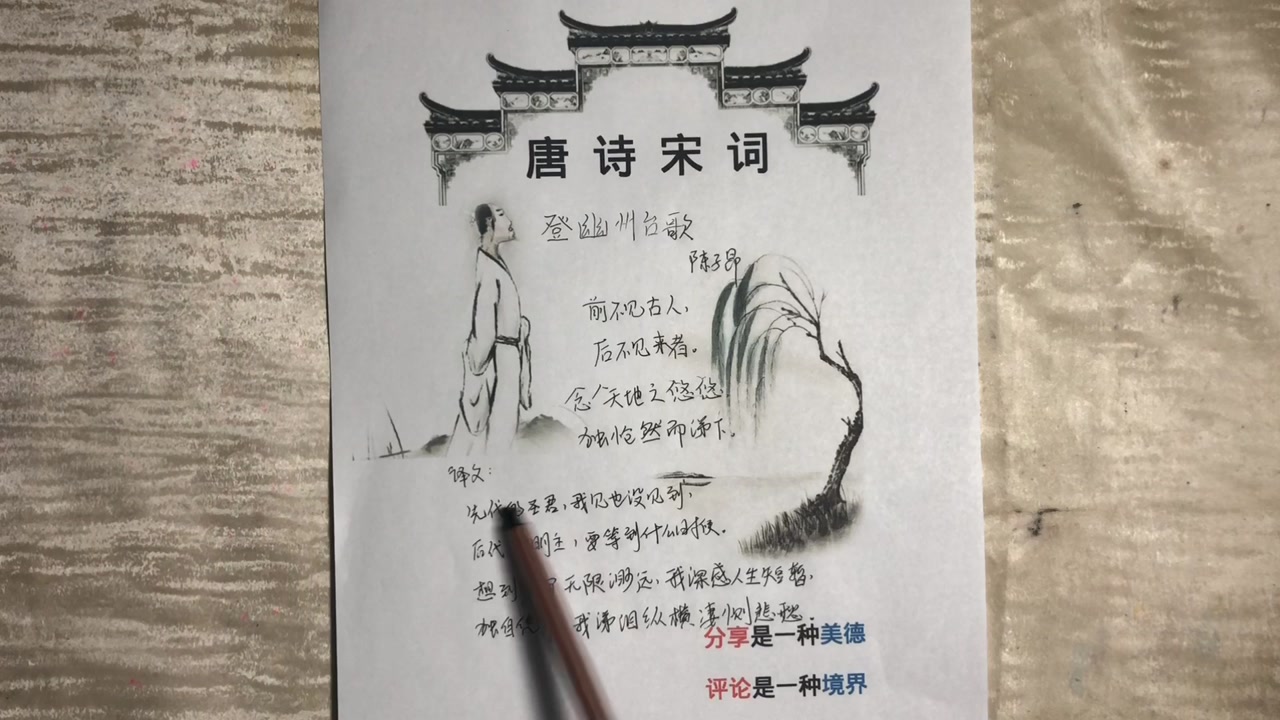 唐诗宋词
登幽州台歌
陈子昂
前不见古人,
后不见来者。
念天地之悠悠,
独怆然而涕下。
译文:
先代圣君,我见也没见到,
后代明主,要等到什么时候。
想到无限渺远,我深感人生短暂,
独自我涕泪纵横凄恻悲愁.
分享是一种美德
评论是一种境界